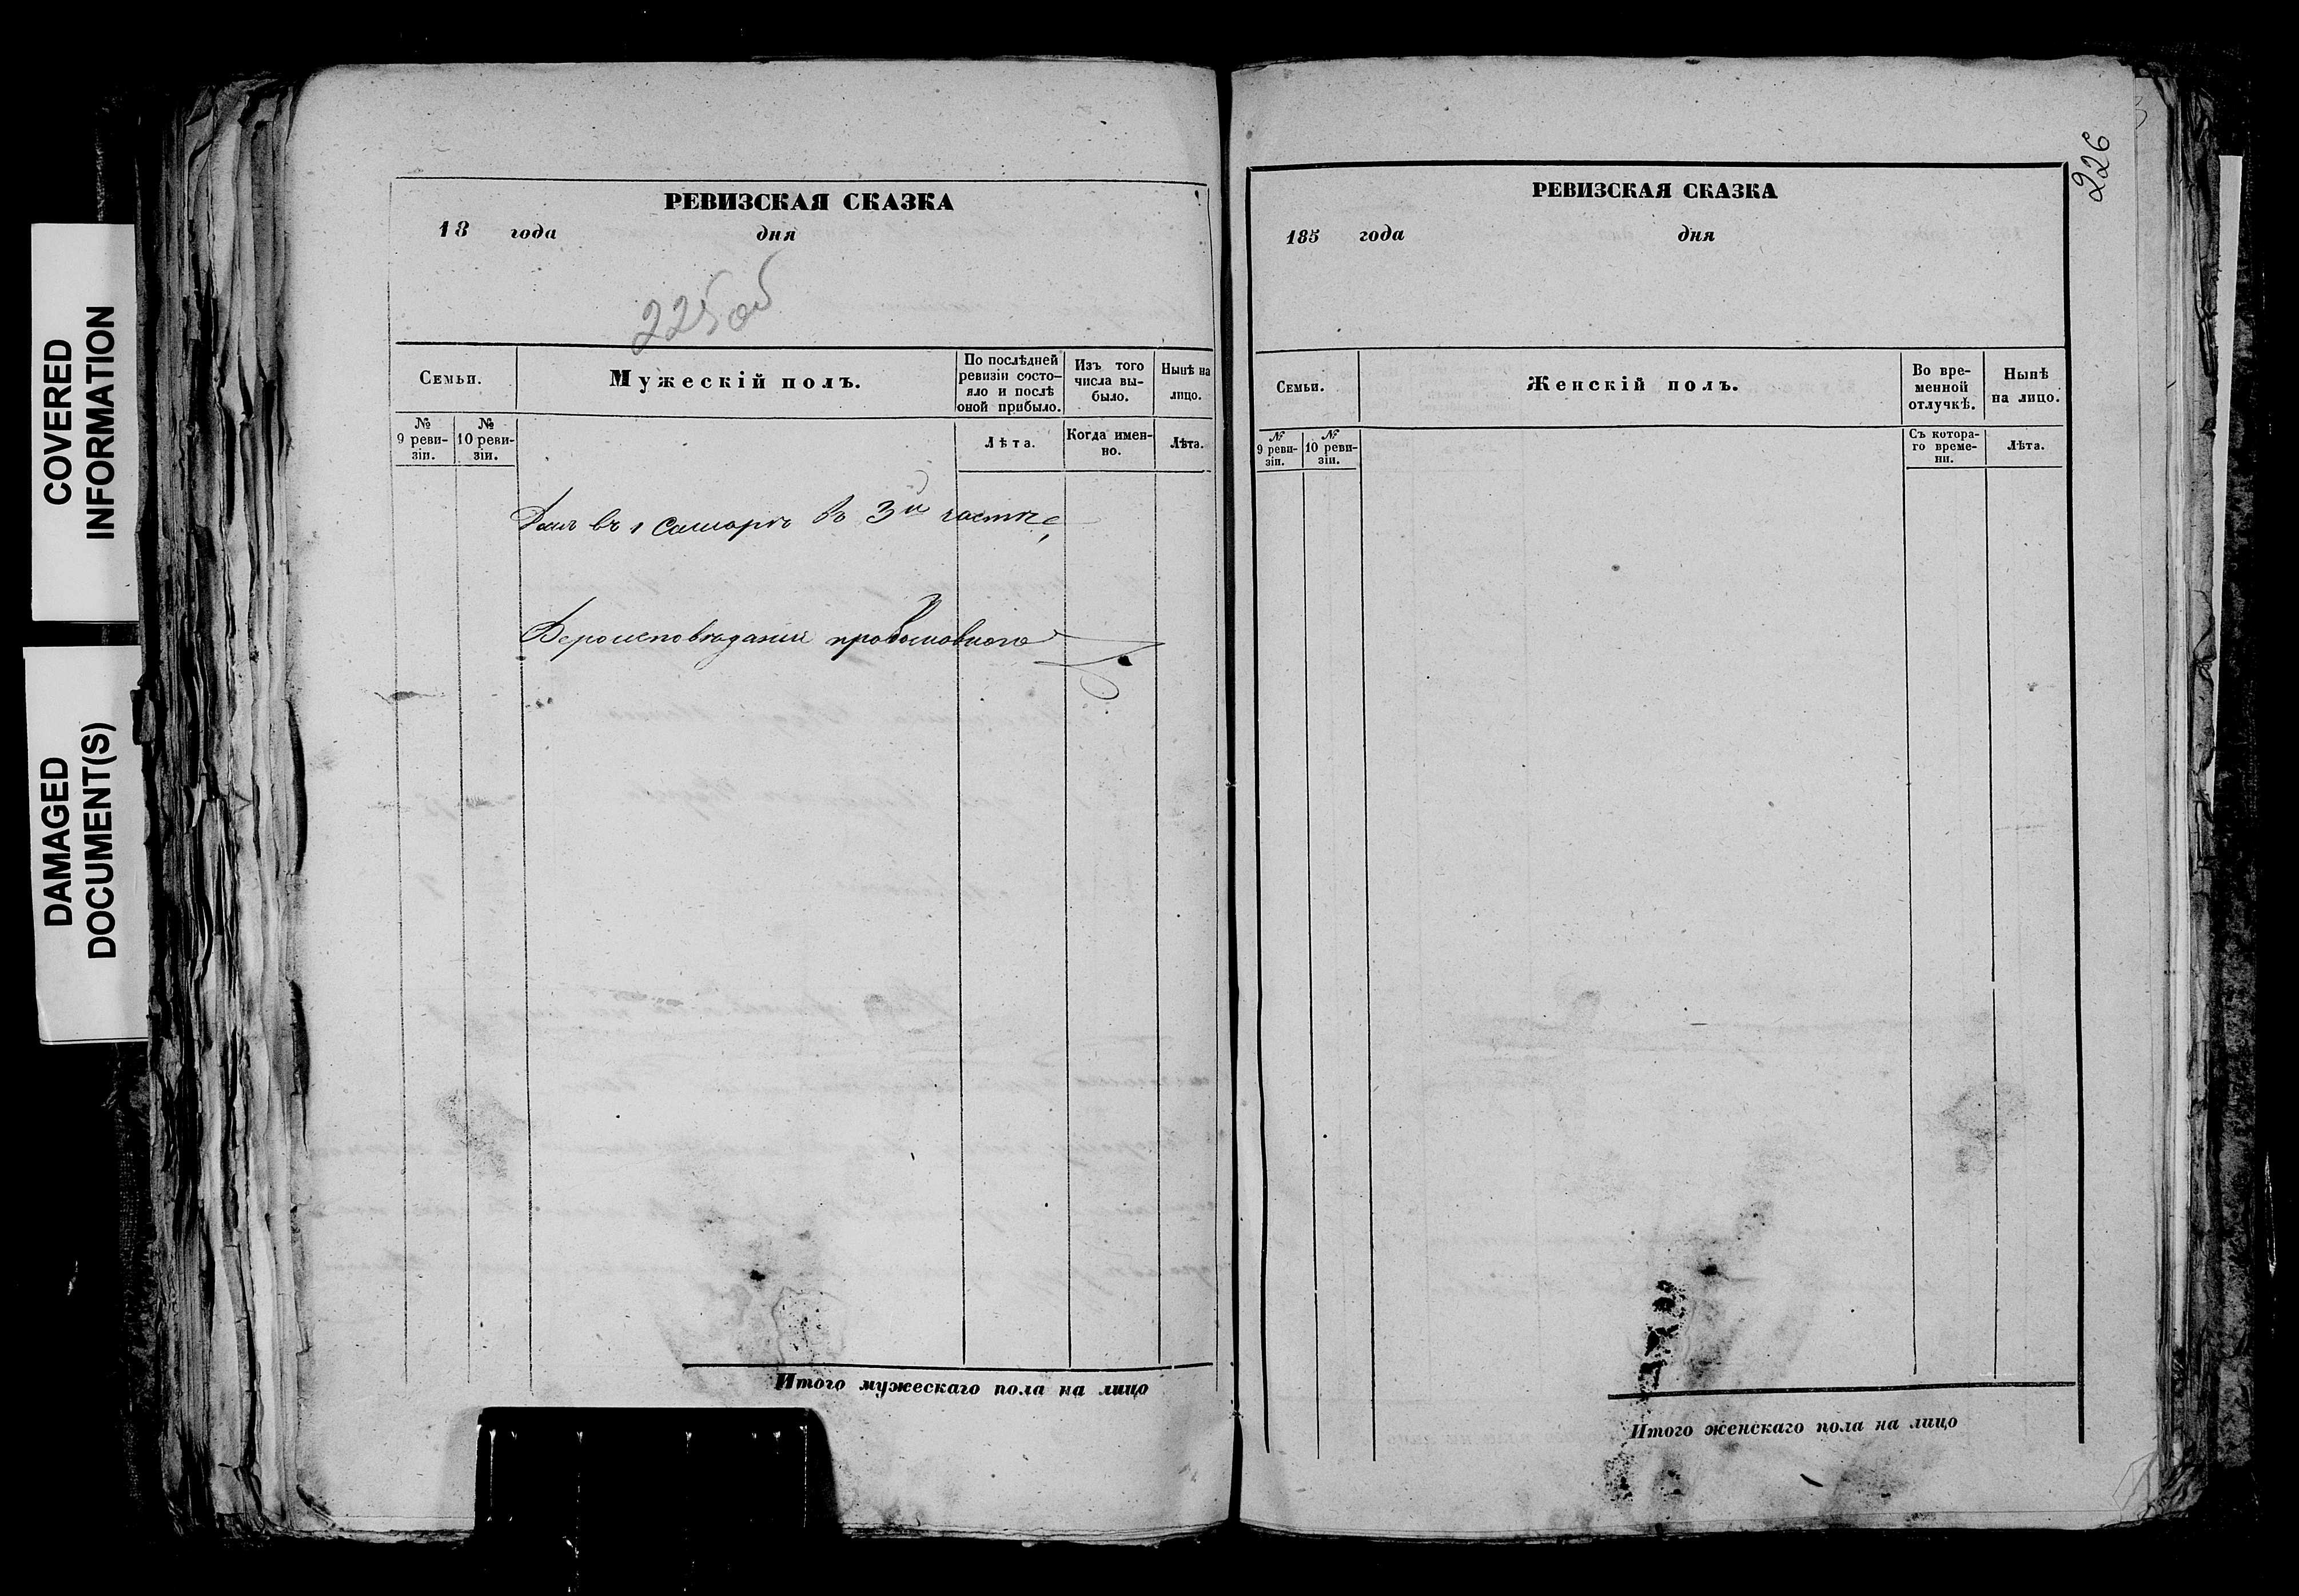 COVERED
INFORMATION
DAMAGED
DOCUMENT(S)
РЕВИЗСКАЯ СКАЗКА
18 года дня
225об
Семьи.
Мужескій полъ.
По послѣдней
ревизіи состо-
яло и послѣ
оной прибыло.
Изъ того
числа вы-
было.
Нынѣ на
лицо.
№
9 реви-
зіи.
№
10 реви-
зіи.
Лѣта.
Когда имен-
но.
Лѣта.
Домъ въ г Самарѣ въ 3й части,
Вероисповѣданія православного
Итого мужескаго пола на лицо
226
РЕВИЗСКАЯ СКАЗКА
185 года дня
Семьи.
Женскій полъ.
Во вре-
менной
отлучкѣ.
Нынѣ
на лицо.
№
9 реви-
зіи.
№
10 реви-
зіи.
Съ котора-
го време-
ни.
Лѣта.
Итого женскаго пола на лицо